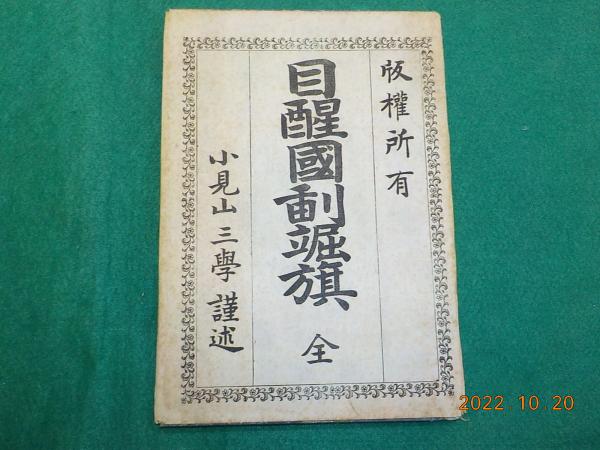 版權所有
目醒國劃䠇旗 全
小見山三學謹述
2022.10.20